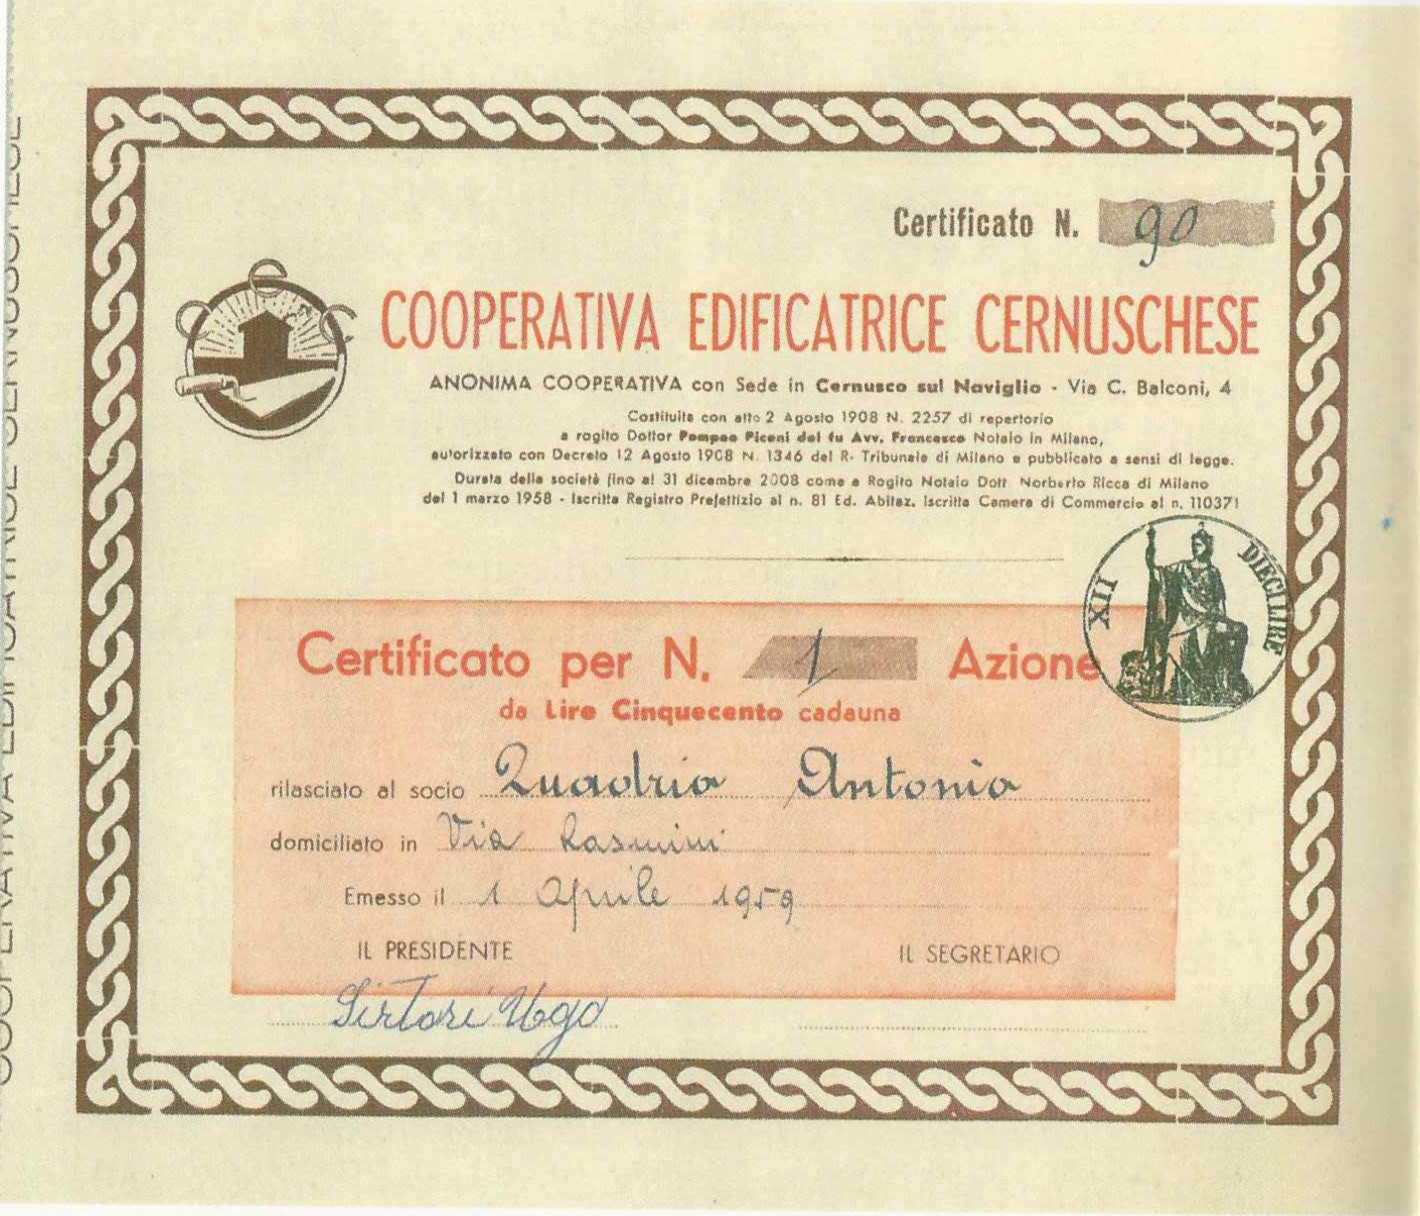 Certificato N. 90
C E C
COOPERATIVA EDIFICATRICE CERNUSCHESE
ANONIMA COOPERATIVA con Sede in Cernusco sul Naviglio - Via C. Balconi, 4
Costituita con atto 2 Agosto 1908 N. 2257 di repertorio
a rogito Dottor Pompeo Piceni del fu Avv. Francesco Notaio in Milano,
autorizzato con Decreto 12 Agosto 1908 N. 1346 del R. Tribunale di Milano e pubblicato a sensi di legge.
Durata della società fino al 31 dicembre 2008 come a Rogito Notaio Dott. Norberto Ricca di Milano
del 1 marzo 1958 - Iscritta Registro Prefettizio al n. 81 Ed. Abitaz. Iscritta Camera di Commercio al n. 110371
XII DIECI LIRE
Certificato per N. 1 Azione
da Lire Cinquecento cadauna
rilasciato al socio Quadrio Antonio
domiciliato in Via
Emesso il 1 Aprile 1959
IL PRESIDENTE IL SEGRETARIO
Sirtori Ugo
COOPERATIVA EDIFICATRICE CERNUSCHESE